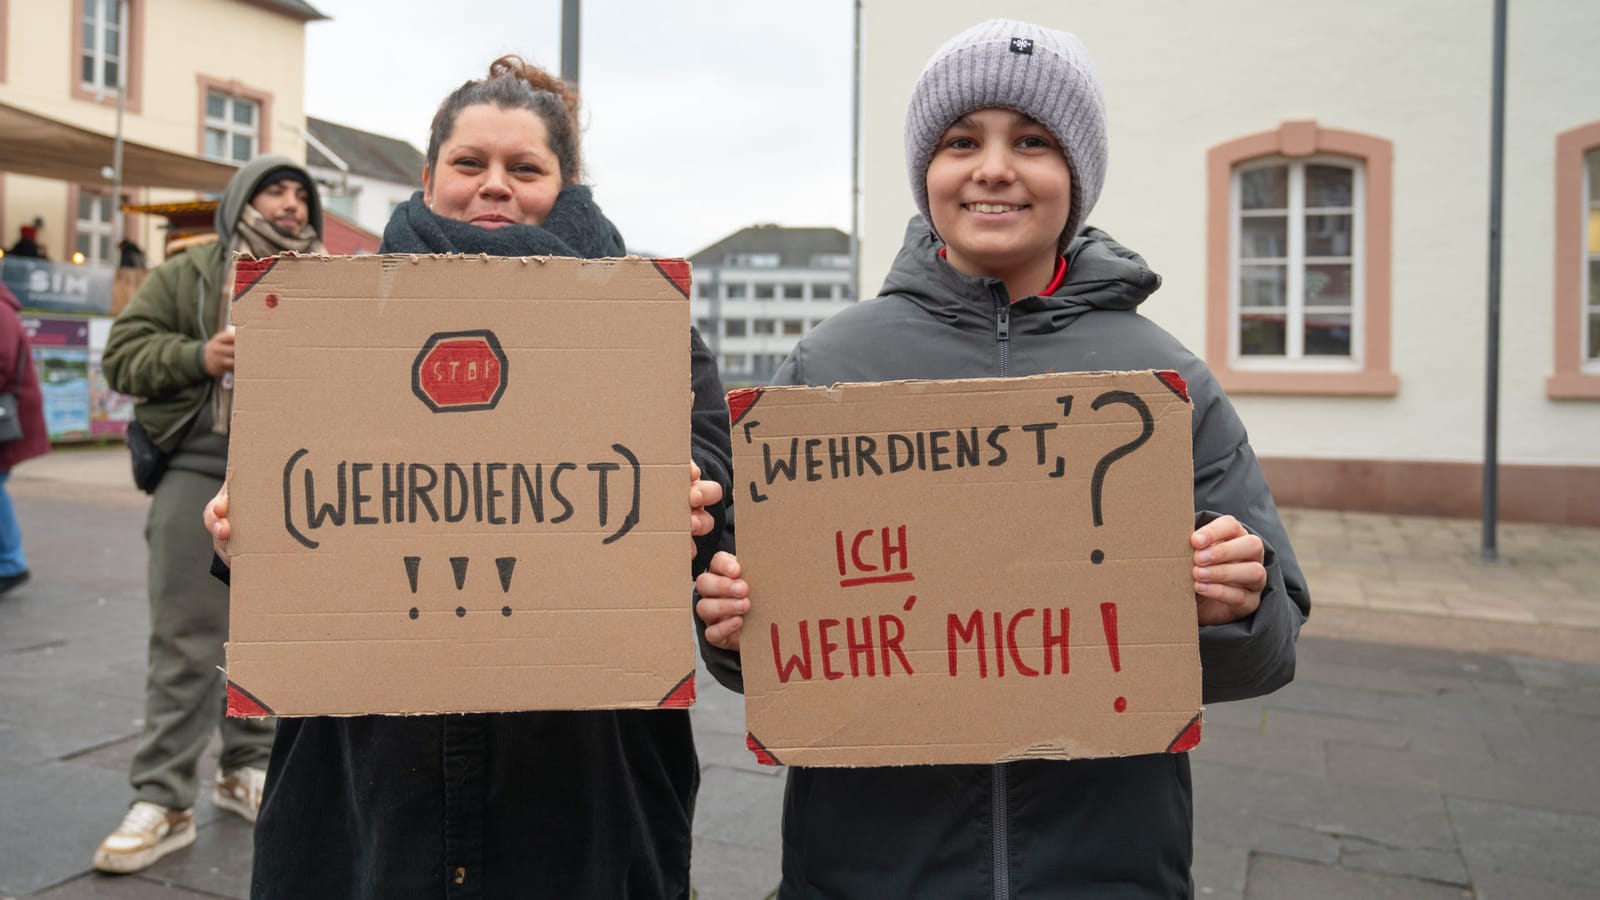 STOP
(WEHRDIENST)
!!!
「WEHRDIENST」?
ICH
WEHR´ MICH!